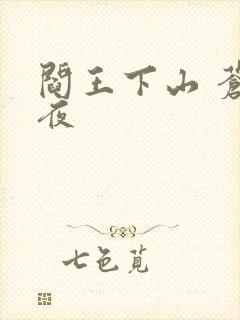 閻王下山 蒼
夜
七色覓